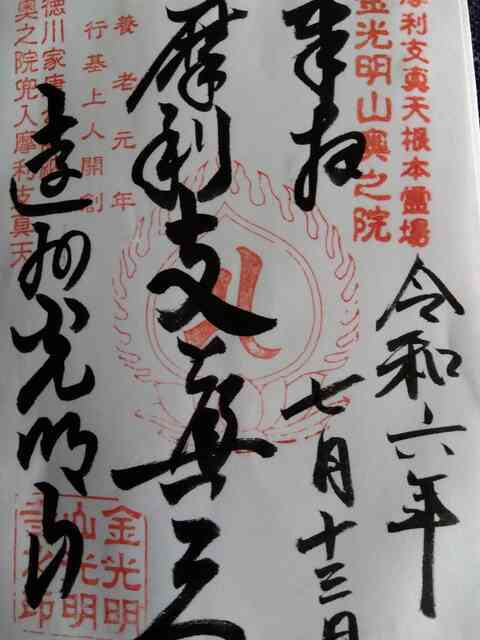 摩利支真天根本霊場
金光明山奥之院
令和六年
七月十三日
奉拝
摩利支真天
養老元年
行基上人開創
遠州光明山
徳川家康
奥之院兜入摩利支真天
金光明
山光明